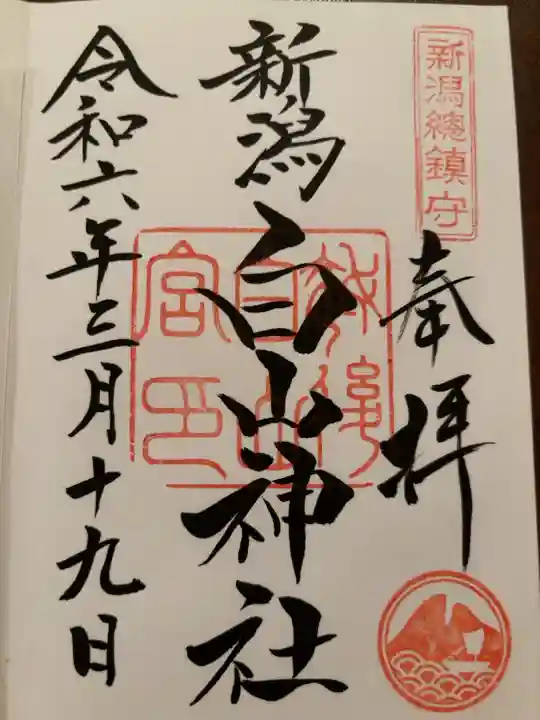 新潟總鎮守
奉拝
新潟白山神社
越後
白山
宮印
令和六年三月十九日